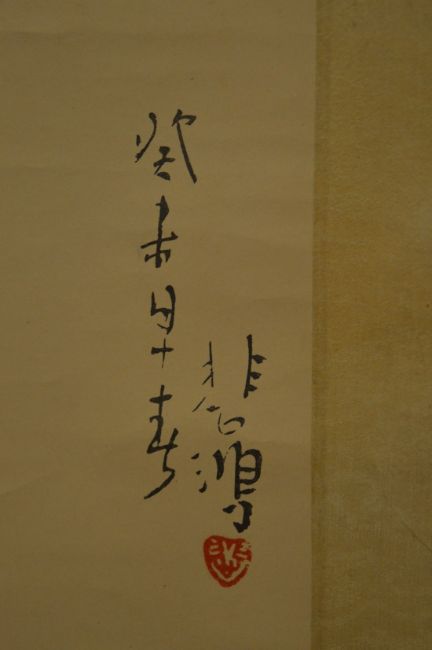 癸未早春
悲鸿